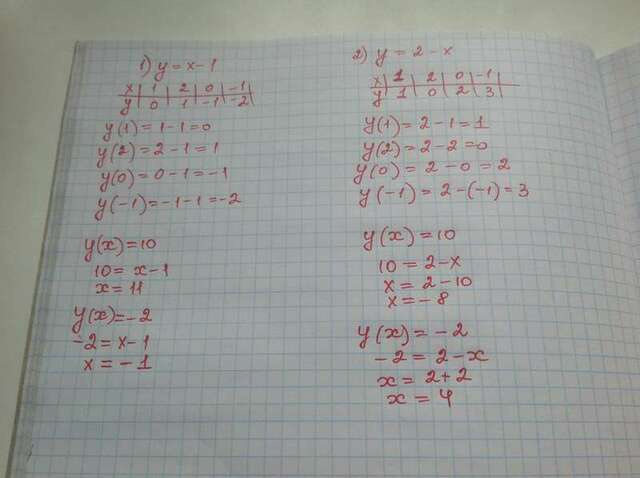 1) y = x - 1
x | 1 | 2 | 0 | -1 |
y | 0 | 1 | -1 | -2 |
y(1) = 1 - 1 = 0
y(2) = 2 - 1 = 1
y(0) = 0 - 1 = -1
y(-1) = -1 - 1 = -2
y(x) = 10
10 = x - 1
x = 11
y(x) = -2
-2 = x - 1
x = -1
2) y = 2 - x
x | 1 | 2 | 0 | -1 |
y | 1 | 0 | 2 | 3 |
y(1) = 2 - 1 = 1
y(2) = 2 - 2 = 0
y(0) = 2 - 0 = 2
y(-1) = 2 - (-1) = 3
y(x) = 10
10 = 2 - x
x = 2 - 10
x = -8
y(x) = -2
-2 = 2 - x
x = 2 + 2
x = 4